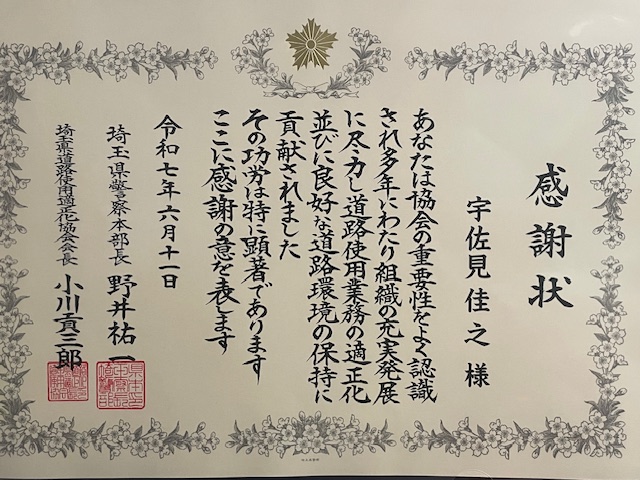 感謝状
宇佐見佳之 様
あなたは協会の重要性をよく認識
され多年にわたり組織の充実発展
に尽力し道路使用業務の適正化
並びに良好な道路環境の保持に
貢献されました
その功労は特に顕著であります
ここに感謝の意を表します
令和七年六月十一日
埼玉県警察本部長 野井祐一
埼玉県道路使用適正化協会会長 小川貢三郎